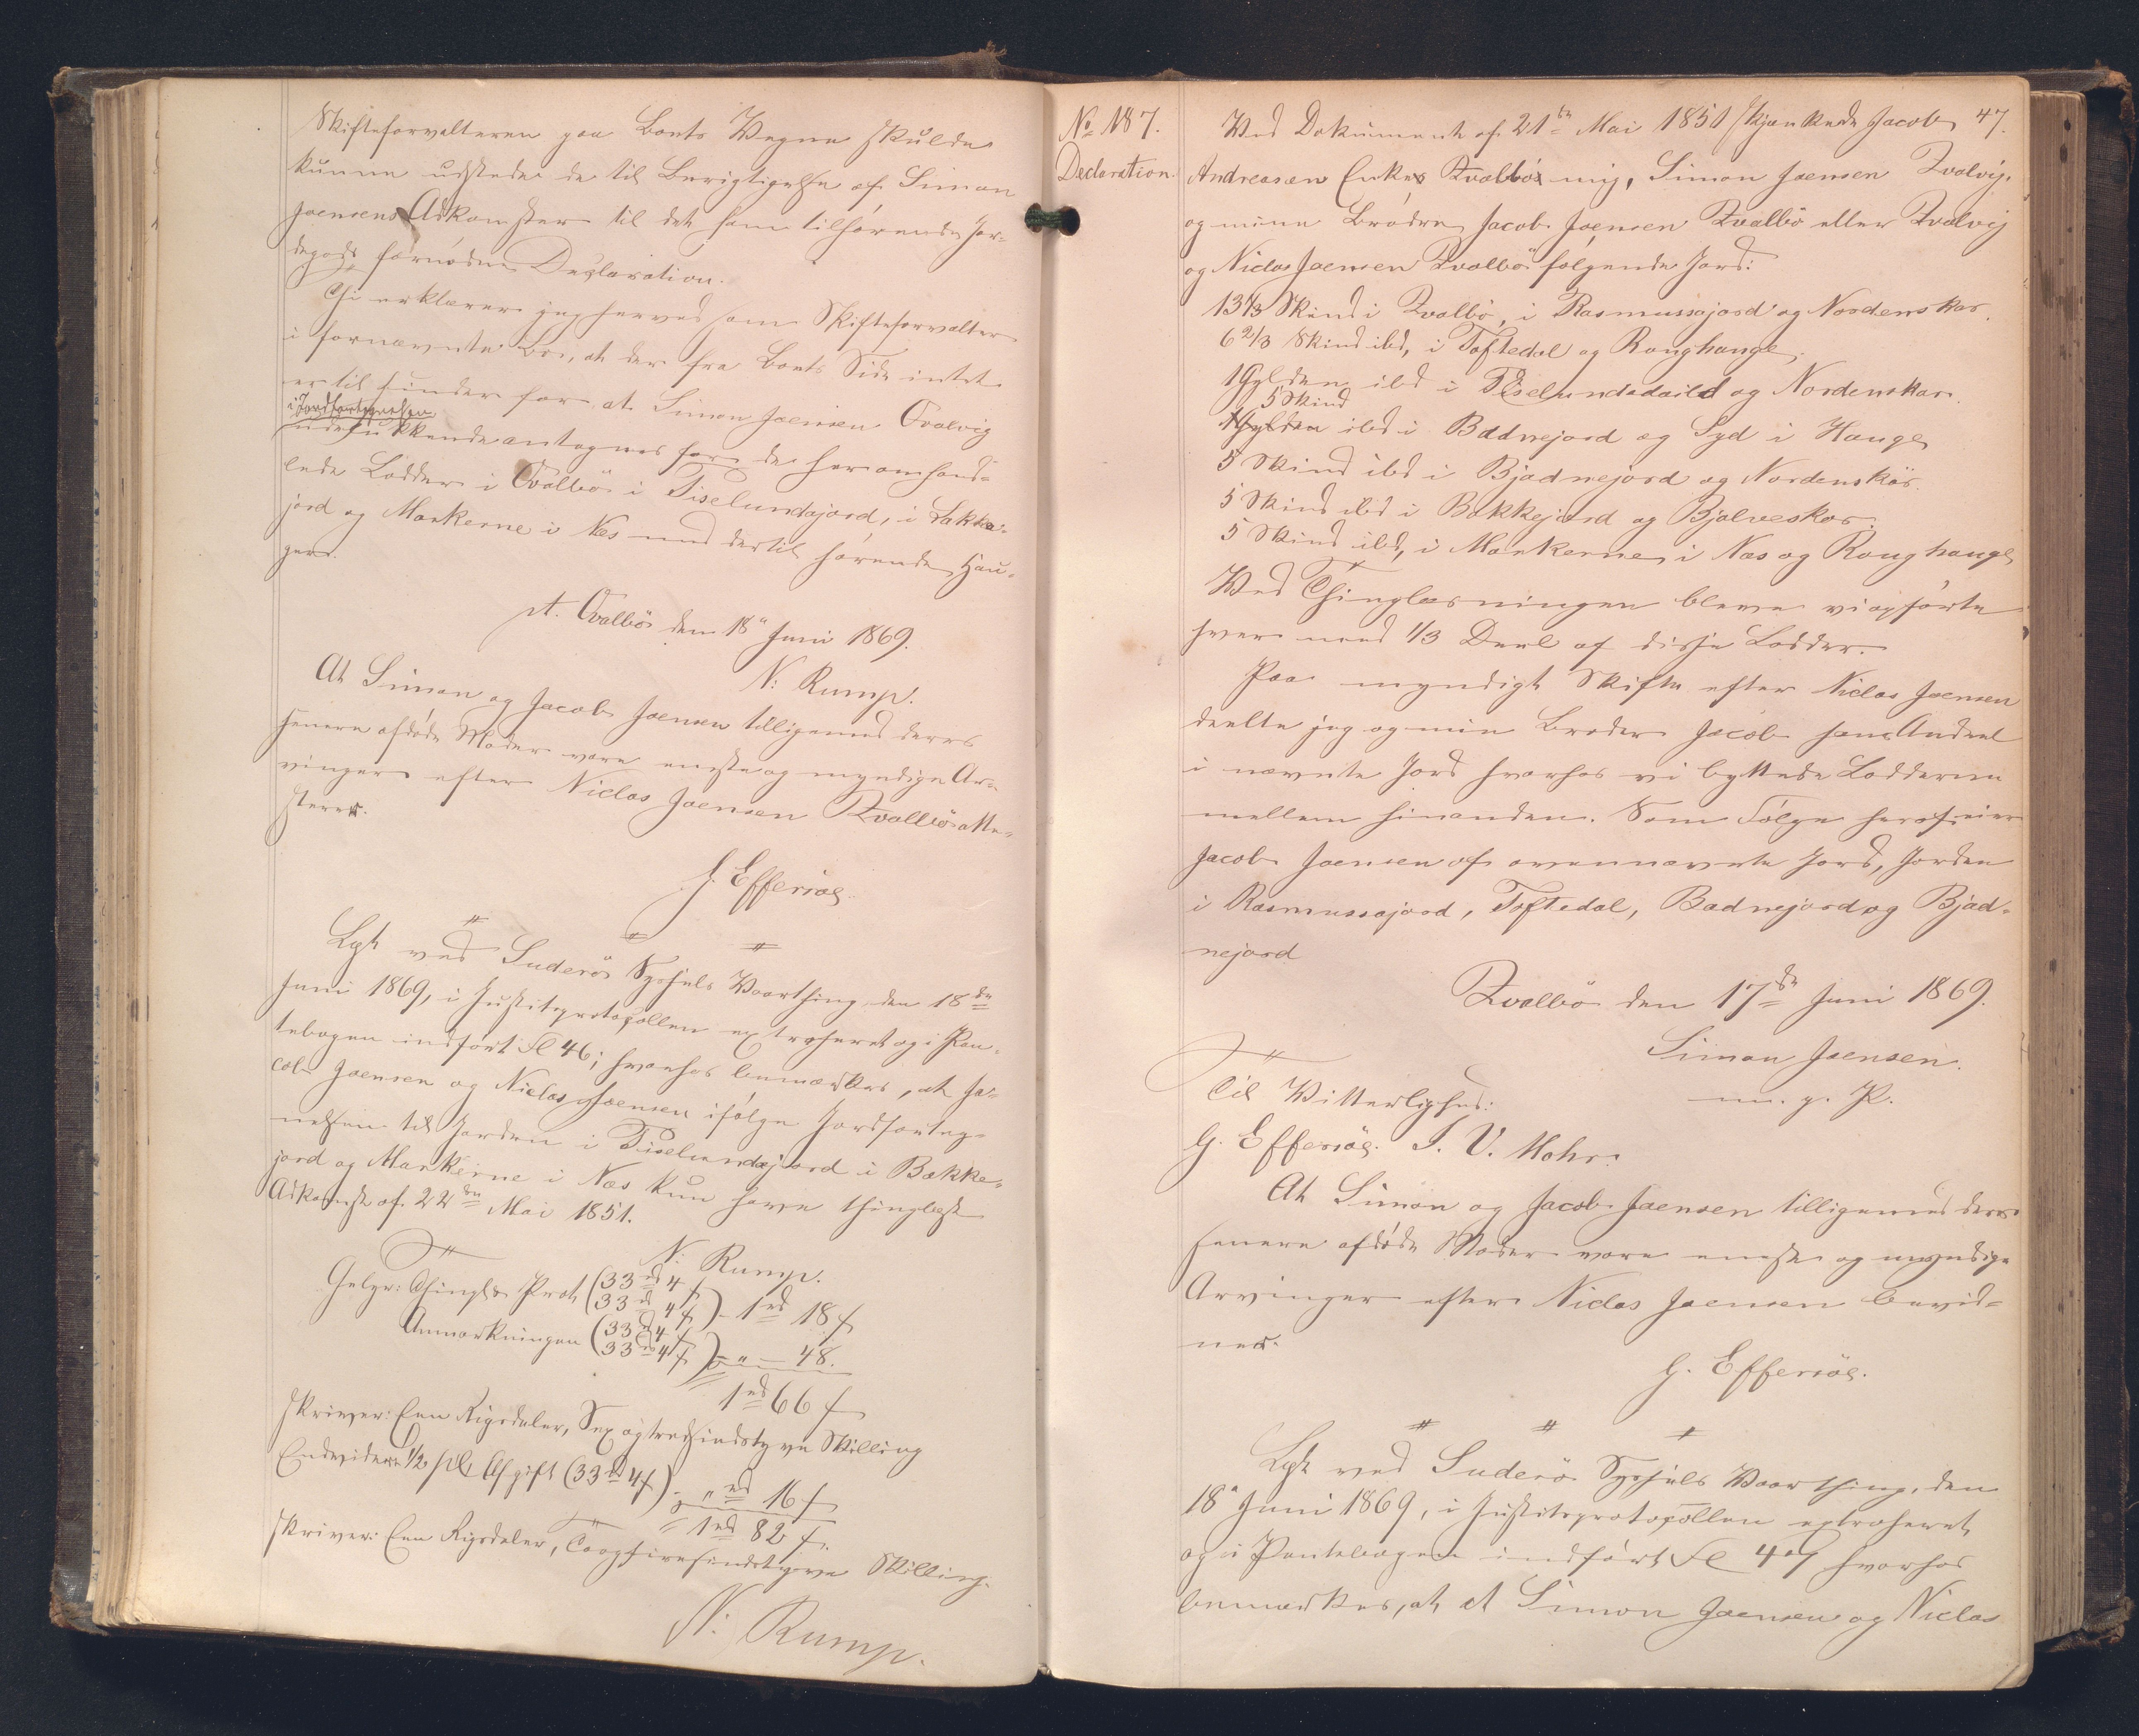 Skifteforvalteren paa Boets Vegne skulde
kunne udstede de til Berigtigelse af Simon
Joensens Adkomster til det ham tilhørende Jor-
degods fornødne Declaration.
Thi erklærer jeg herved som Skifteforvalter
i fornævnte Bo, at der fra Boets Side intet
er til Hinder for at Simon Joensen Qvalvig
i Jordfortegnelsen
udelukkende antegnes for de heromhand-
lede Lodder i Qvalbö i Tiselundajord, i Bakke-
jord og Markerne i Næs med dertil hörende Hau-
gen.
pt. Qvalbö den 18" Juni 1869.
N: Rump.
At Simon og Jacob Joensen tilligemed deres
senere afdöde Moder vare eneste og myndige Ar-
vinger efter Niclas Joensen Qvalbö atte-
sterer.
G. Effersöe.
Lyst ved Suderö Syssels Vaarthing den 18de
Juni 1869, i Justitsprotokollen extraheret og i Pan-
tebogen indfört Fol 46; hvorhos bemærkes, at Ja-
cob Joensen og Niclas Joensen ifölge Jordforteg-
nelsen til Jorden i Tiselundajord i Bakke-
jord og Markerne i Næs kun have thinglyst
Adkomst af 22de Mai 1851.
N. Rump.
Gebyr: Thingl. & Prot (33 rd 4 ſ
(33 rd 4 ſ) - 1 rd 18 ſ
Anmærkningen (33 rd 4 ſ
(33 rd 4 ſ) = " — 48.
1 rd 66 ſ
skriver: Een Rigsdaler, Sex og tredsindstyve Skilling
Endvidere 1/2 pCt Afgift (33 rd 4 ſ) = " rd 16 ſ
= 1 rd 82 ſ.
skriver: Een Rigsdaler, To og firesindstyve Skilling.
N: Rump.
No 187.
Declaration.
47.
Ved Dokument af 21de Mai 1851 skjænkede Jacob
Andreasen Enke Qvalbö mig, Simon Joensen Qvalvig,
og mine Brödre Jacob Joensen Qvalbö eller Qvalvig
og Niclas Joensen Qvalbö fölgende Jord:
13 1/3 Skind i Qvalbö, i Rasmussajord og Nordenskar.
6 2/3 Skind ibd, i Toftedal og Roughauge.
1 Gylden ibd i Tiselundadaild og Nordenskar.
5 Skind
1 Gylden ibd i Badnejord og Syd i Hauge
5 Skind ibd i Bjadnejord og Nordenskar.
5 Skind ibd i Bakkejord og Bjalveskar.
5 Skind ibd, i Markerne i Næs og Roughauge
Ved Thinglæsningen bleve vi opförte
hver med 1/3 Deel af disse Lodder.
Paa myndigt Skifte efter Niclas Joensen
deelte jeg og min Broder Jacob hans Andeel
i nævnte Jord hvorhos vi byttede Lodderne
mellem hinanden. Som Fölge heraf eier
Jacob Joensen af ovennævnte Jord, Jorden
i Rasmussajord, Toftedal, Badnejord og Bjad-
nejord
Qvalbö den 17de Juni 1869.
Simon Joensen.
m. p. P.
Til Vitterlighed:
G. Effersöe. J. V. Mohr.
At Simon og Jacob Joensen tilligemed deres
senere afdöde Moder vare eneste og myndige
Arvinger efter Niclas Joensen bevid-
ner.
G. Effersöe.
Lyst ved Suderö Syssels Vaarthing, den
18" Juni 1869, i Justitsprotokollen extraheret
og i Pantebogen indfört Fol 47 hvorhos
bemærkes, at at Simon Joensen og Niclas